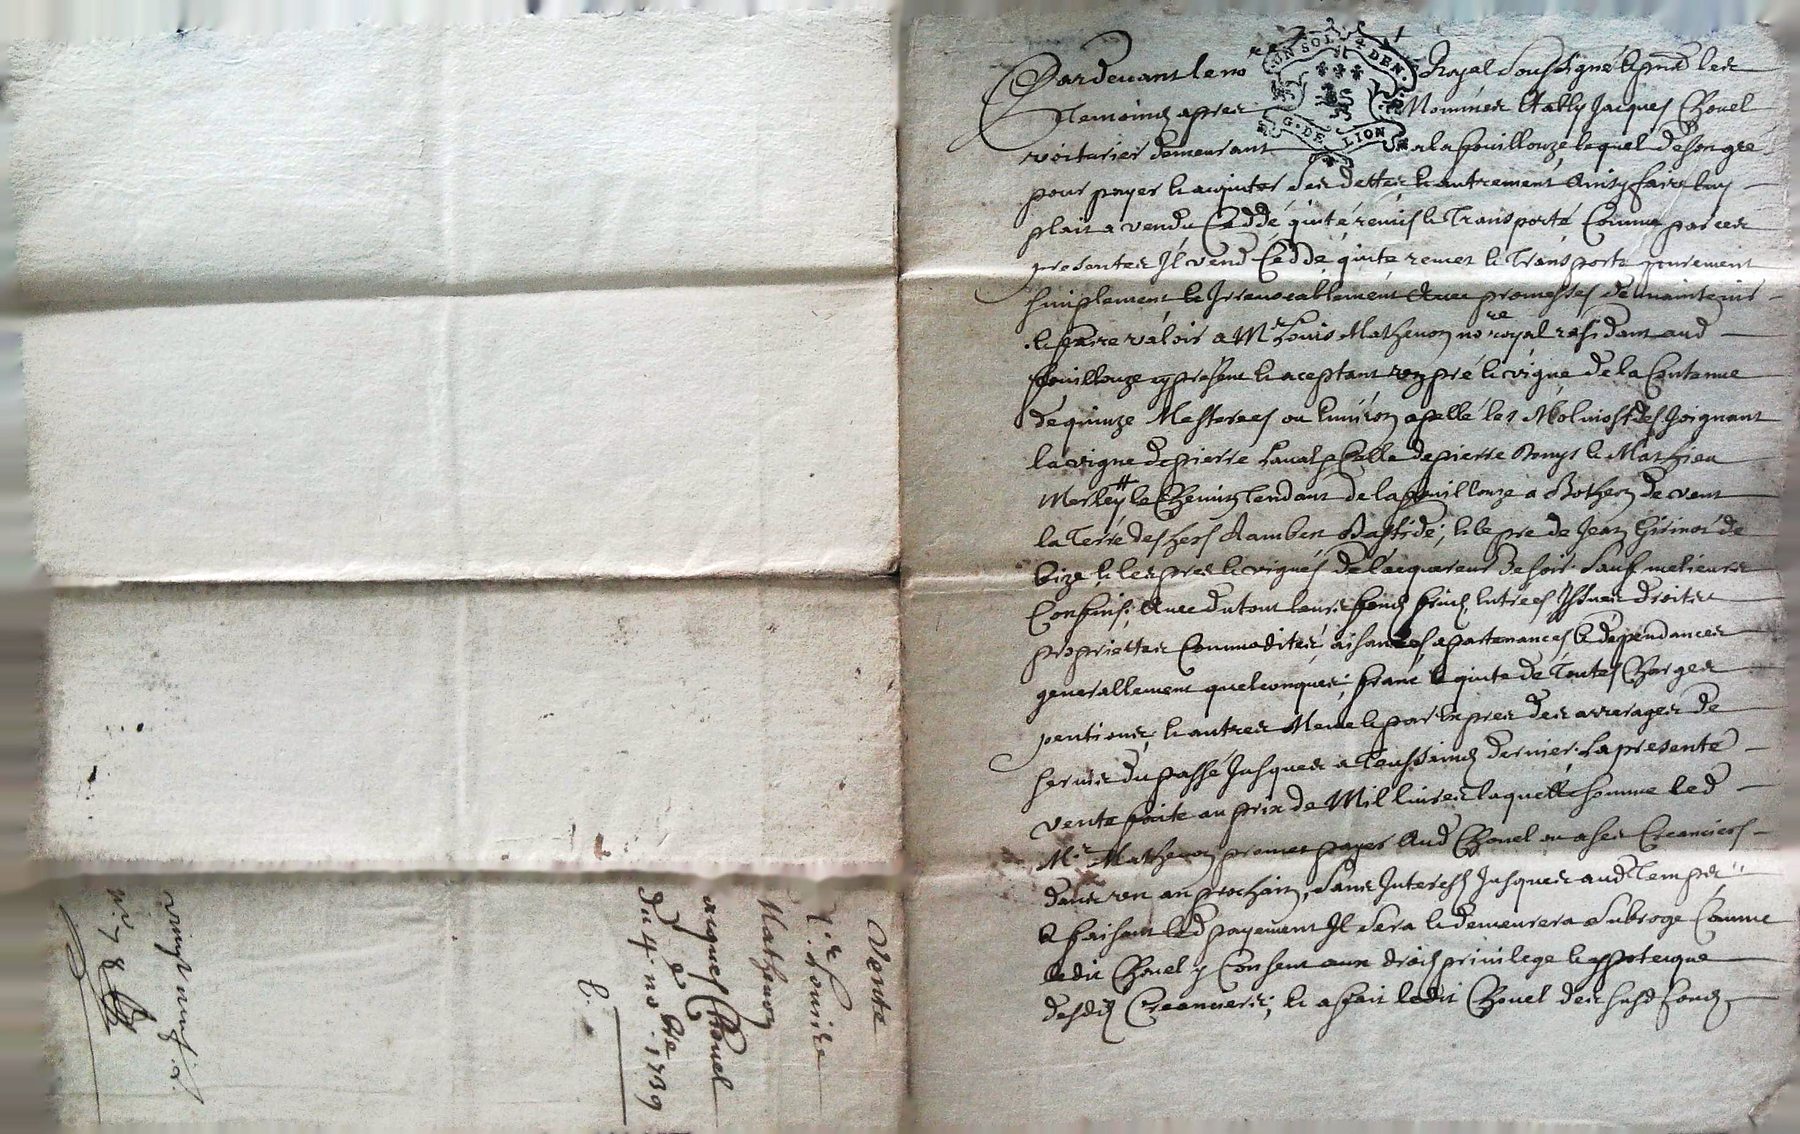 UN SOL 4 DEN.
G. DE LION
Pardevant le no re Royal soussigné & pnt les
Temoins apres Nommes Estably Jacques Chovel
voiturier demeurant a la fouillouze lequel de son gré
pour payer & aquiter ses dettes & autrement Ainsy faire luy
plait a vendu Ceddé quité remis & Transporté Comme par ces
presentes Il vend Cedde quite remet & Transporte purement
simplement & Irrevocablement Avec promesses de maintenir
& faire valoir a Mr Louis Mathevon no re royal residant aud
fouillouze cy present & aceptant un pré & vigne de la Contenue
de quinze Mesterees ou Environ apellé les Joignant
la vigne de pierre Celle de pierre Bonys & Mathieu
le Chemin Tendant de la fouillouze a Botheon de vent
la Terre des hers Rambert Bastide, & le pre de Jean Girinon de
bize & les pres & vignes de l'acquereur de soir sauf melieurs
Confins; Avec du tout leurs fonds fruits Entrees Issues droits
proprietes Commodites, aisances, apartenances, & dependances
generallement quelconques; franc & quite de Toutes Charges
pentions, & autres Meme & par Expres des arrerages de
servis du passé Jusques a Toussaints dernier. La presente
vente faite au prix de Mil livres laquelle somme led
Mr Mathevon promet payer Aud Chovel ou a ses Creanciers
dans un an prochain, sans Interest Jusques aud Temps
& faisant led payement Il sera & demeurera subrogé Comme
ledit Chovel y Consent aux droits privilege & ypoteque
desdits Creanciers; & a fait ledit Chovel des susd fonds
Vente
Mr Louis
Mathevon
Jacques Chovel
du 4 no bre 1739
8.
vingt neuf